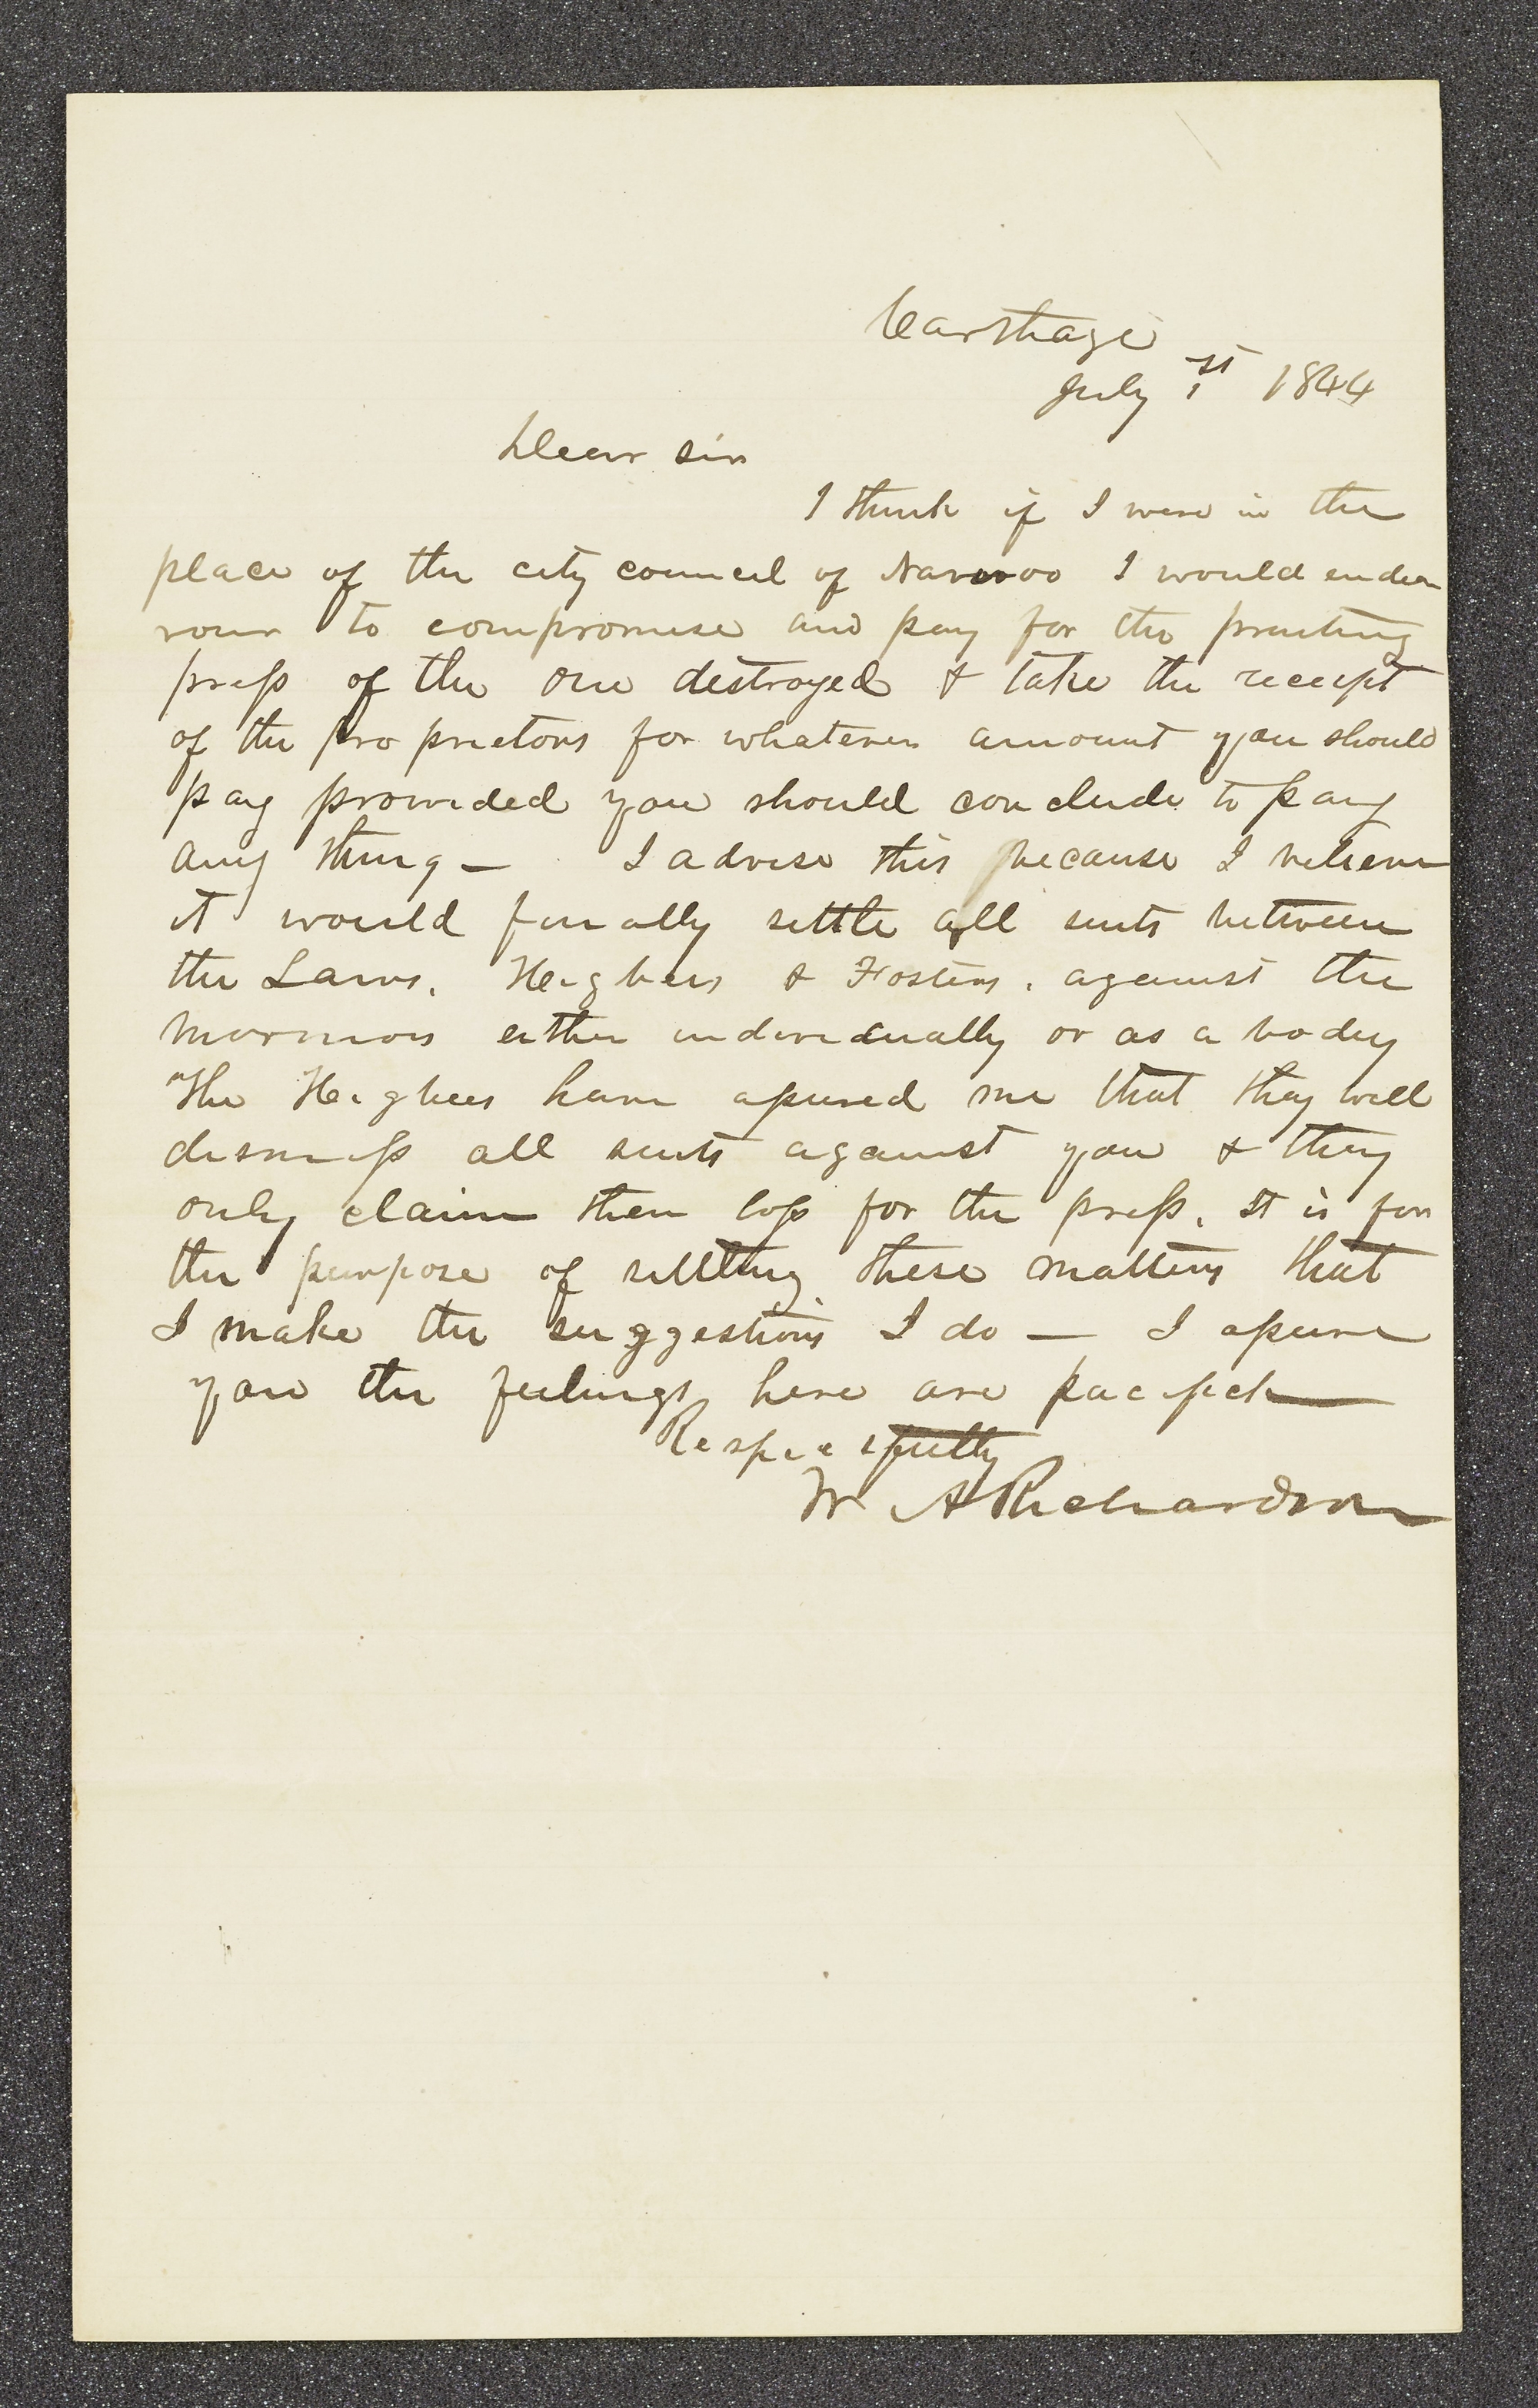 Carthage
July 1st 1844
Dear Sir
I think if I were in the
place of the city council of Nauvoo I would endea
vour to compromise and pay for the printing
press of the one destroyed & take the receipt
of the proprietors for whatever amount you should
pay provided you should conclude to pay
any thing — I advise this because I believe
it would finally settle all suits between
the Laws, Higbees & Fosters, against the
mormons either individually or as a body
The Higbees have assured me that they will
dismiss all suits against you & they
only claim their loss for the press, it is for
the purpose of settling these matters that
I make the suggestions I do — I assure
you the feelings here are pacifick
Respectfully
W A Richardson